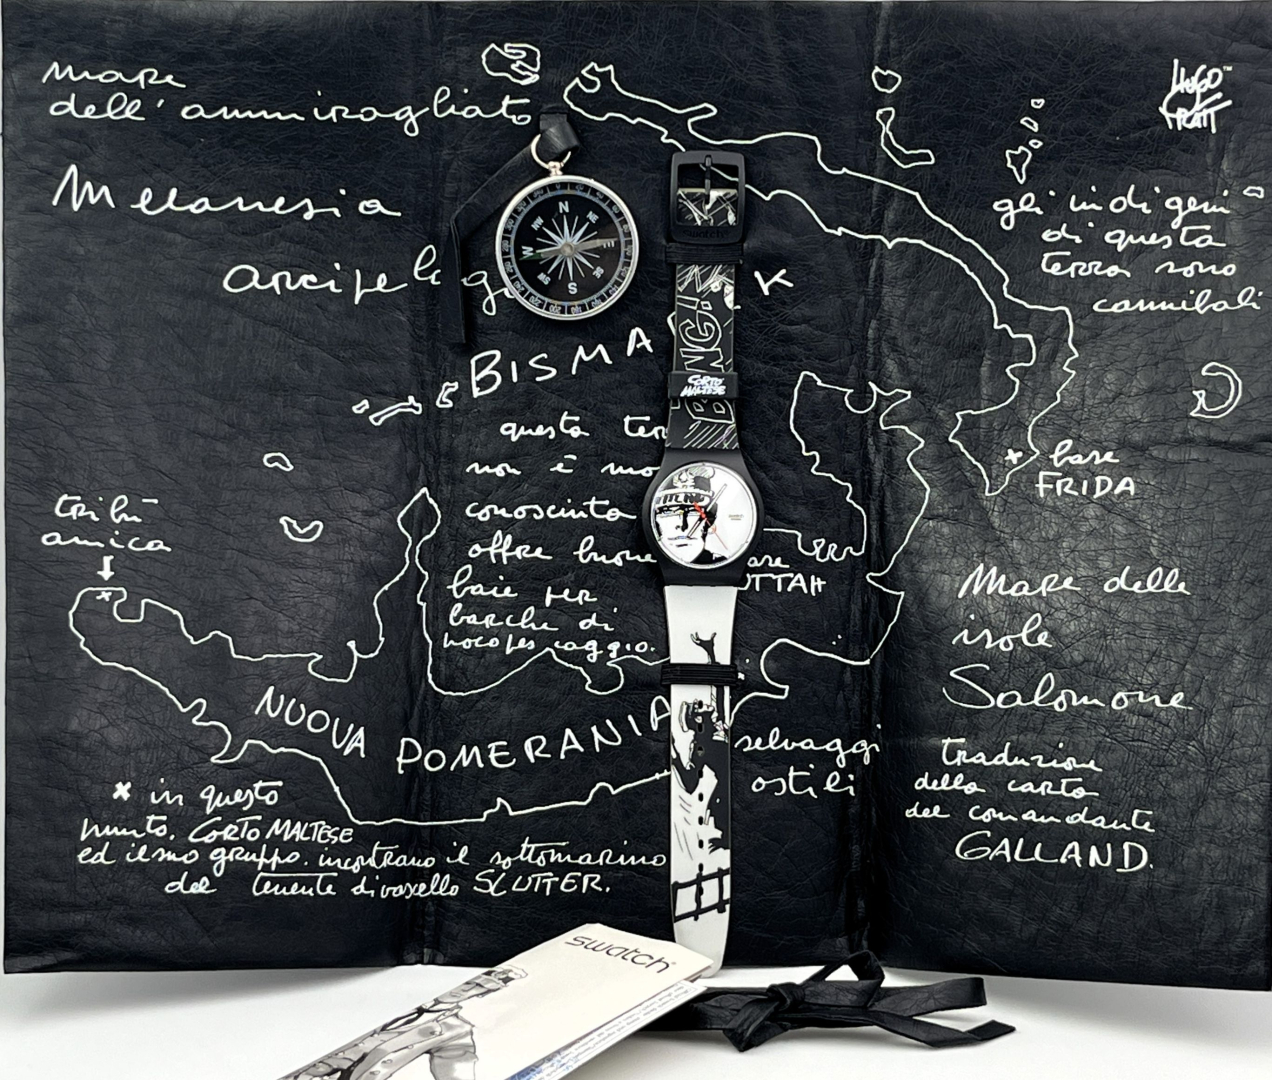 mare
dell'ammiragliato
HUGO
PRATT
™
Melanesia
gli indigeni
di questa
terra sono
cannibali
arcipelago
K
BISMA
BANG!
CORTO
MALTESE
N
NE
E
SE
S
SW
W
NW
swatch
questa ter
non è mo
conosciuta
offre buone
baie per
barche di
base
FRIDA
tribù
amica
are
OTTAH
mare delle
isole
Salomone
NUOVA
POMERANIA
selvaggi
ostili
traduzione
della carta
del comandante
GALLAND.
x in questo
punto. CORTO MALTESE
ed il suo gruppo. incontrano il sottomarino
del tenente di vascello SLUTTER.
swatch